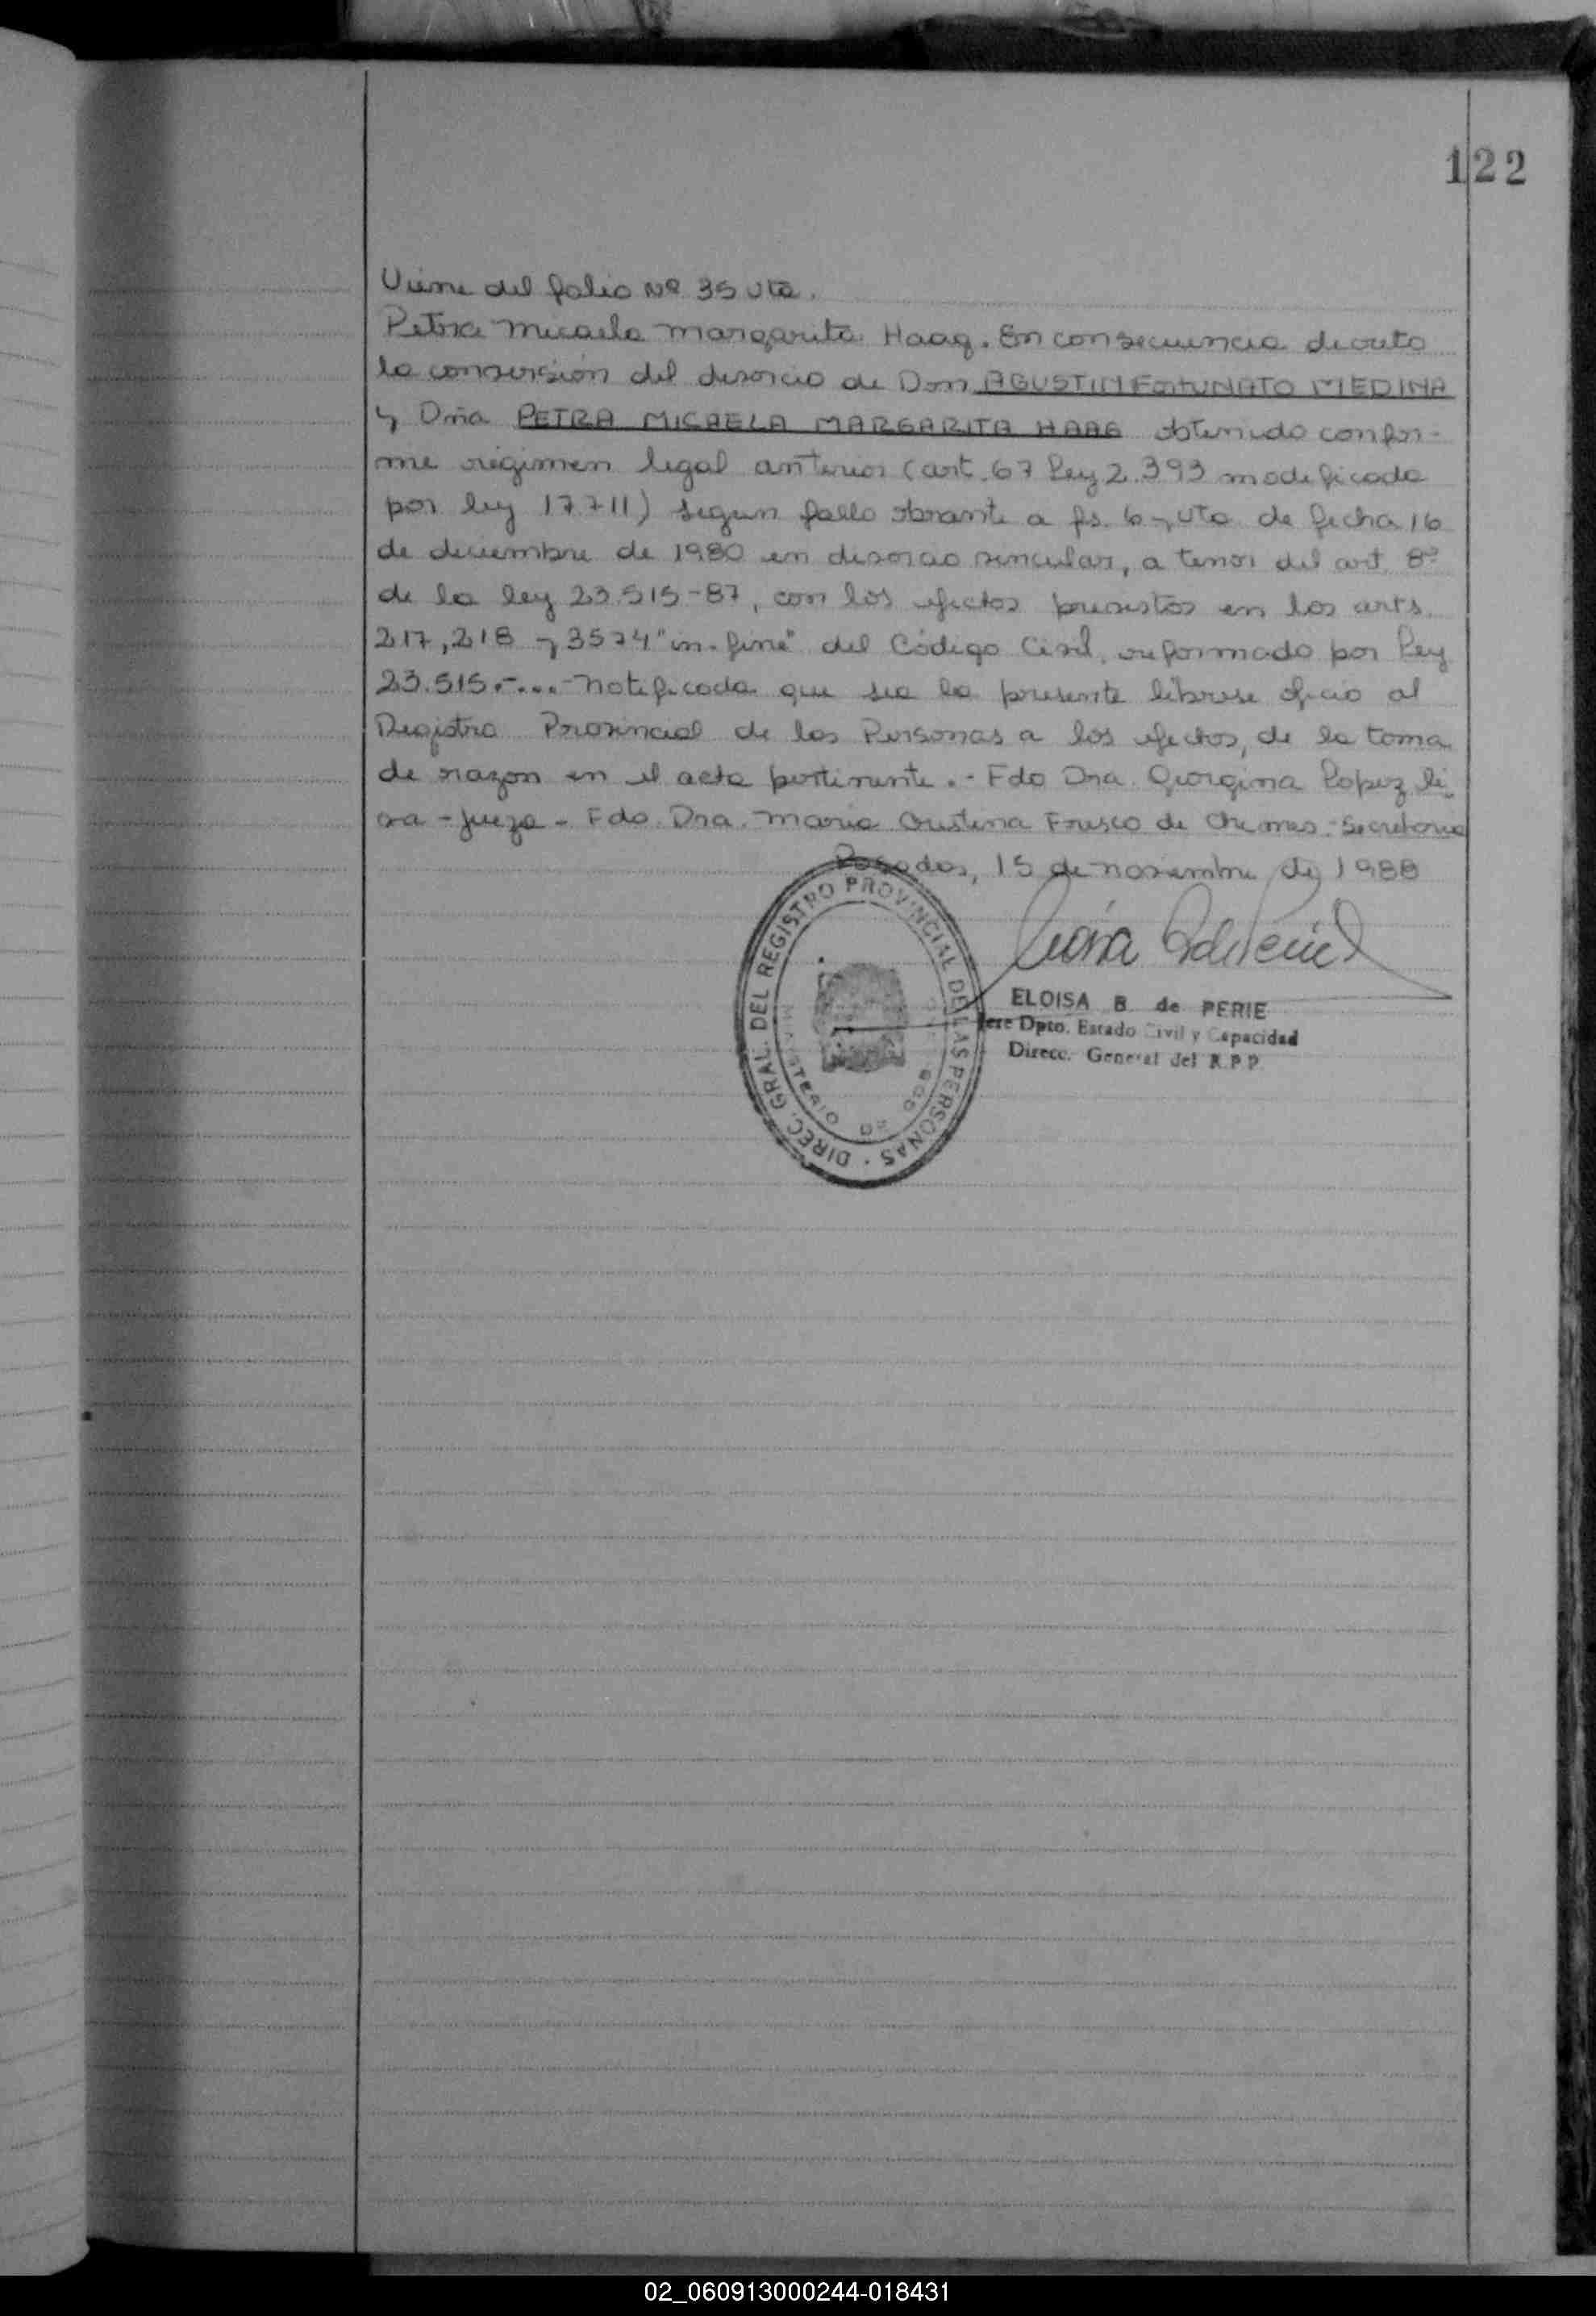 122
Viene del folio Nº 35 vta.
Petra Micaela Margarita Haag. En consecuencia decreto
la conversión del divorcio de Don AGUSTIN FORTUNATO MEDINA
y Dña PETRA MICAELA MARGARITA HAAG obtenido confor-
me régimen legal anterior (art. 67 Ley 2.393 modificada
por ley 17711) segun fallo obrante a fs. 6 y vta de fecha 16
de diciembre de 1980 en divorcio vincular, a tenor del art. 8º
de la ley 23.515-87, con los efectos previstos en los arts.
217, 218 y 3574 "in-fine" del Código Civil, reformado por Ley
23.515.-...- Notificada que sea la presente líbrese oficio al
Registro Provincial de las Personas a los efectos, de la toma
de razon en el acta pertinente.- Fdo Dra. Georgina Lopez li
ra - Jueza - Fdo. Dra. Maria Cristina Fresco de Chemes.- Secretaria
Posadas, 15 de noviembre de 1988
DIREC. GRAL. DEL REGISTRO PROVINCIAL DE LAS PERSONAS
MINISTERIO DE GOB
ELOISA B. de PERIE
Jefe Dpto. Estado Civil y Capacidad
Direcc. General del R.P.P.
02_060913000244-018431